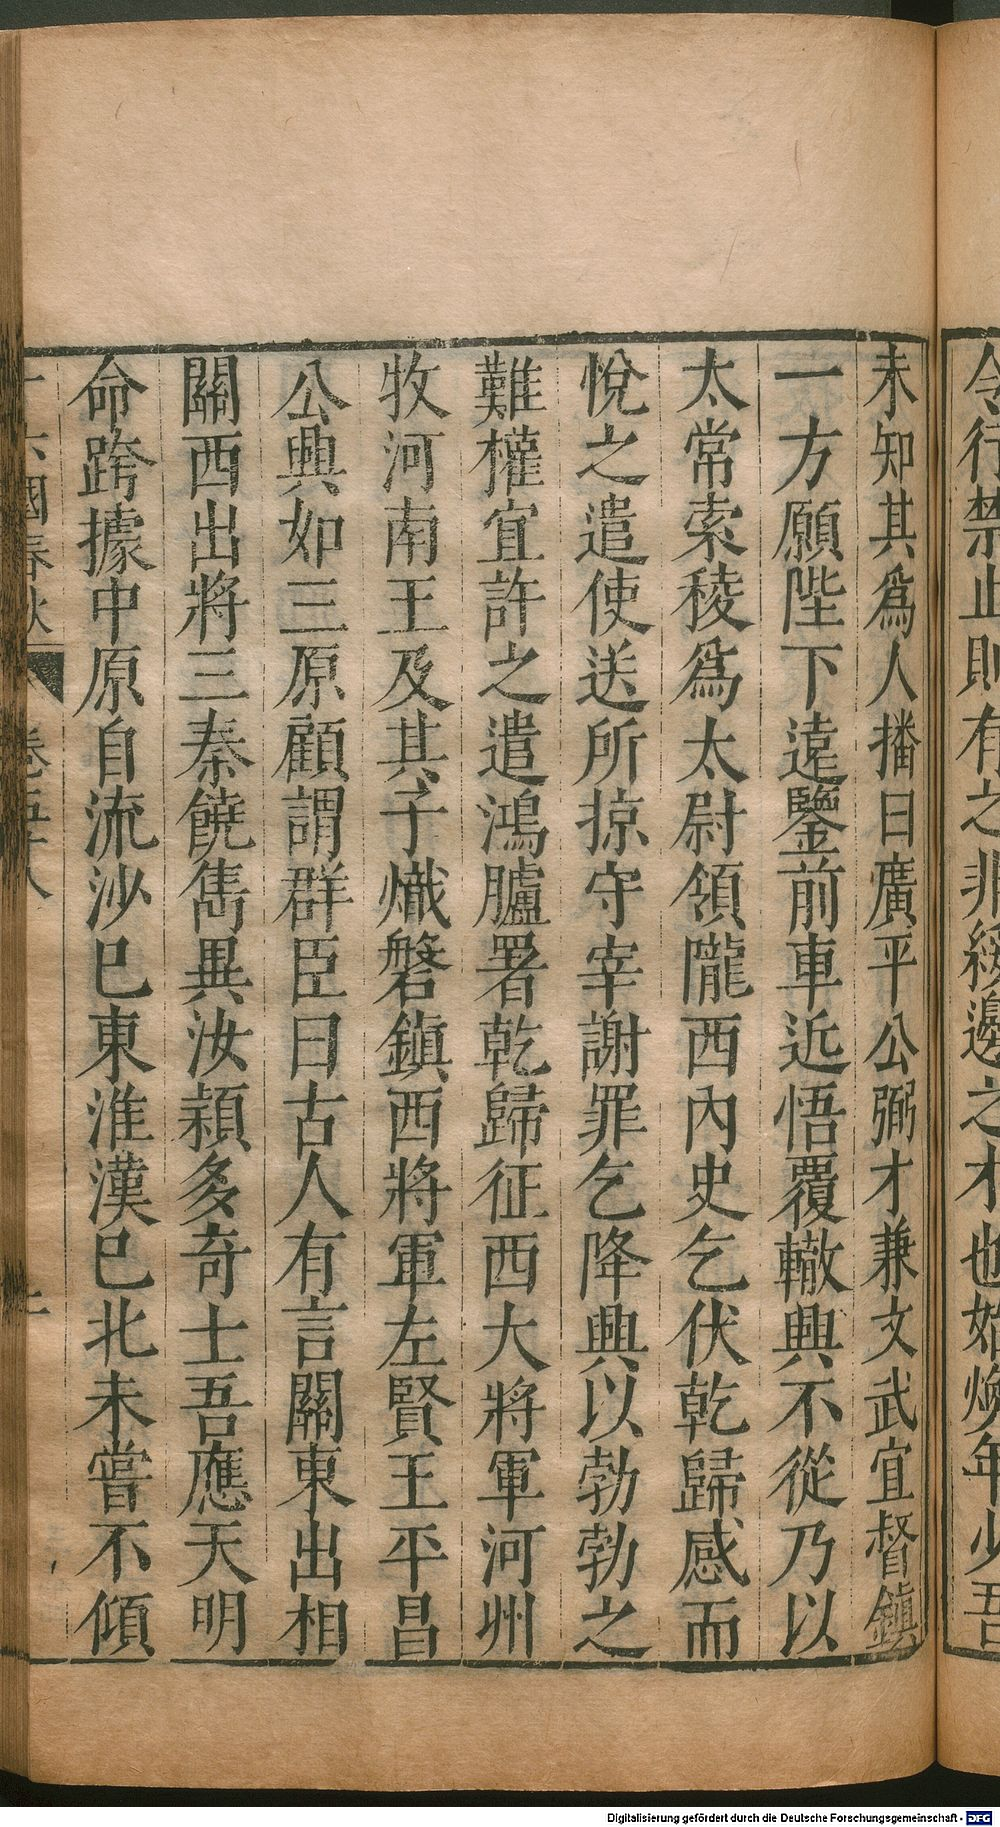 令行禁止則有之非綏邊之才也始煥年少吾
未知其爲人播曰廣平公弼才兼文武宜督鎮
一方願陛下遠鑒前車近悟覆轍興不從乃以
太常索稜爲太尉領隴西內史乞伏乾歸感而
悅之遣使送所掠守宰謝罪乞降興以勃勃之
難權宜許之遣鴻臚署乾歸征西大將軍河州
牧河南王及其子熾磐鎮西將軍左賢王平昌
公興如三原顧謂群臣曰古人有言關東出相
關西出將三秦饒雋異汝潁多奇士吾應天明
命跨據中原自流沙巳東淮漢巳北未嘗不傾
十六國春秋 卷五十八
Digitalisierung gefördert durch die Deutsche Forschungsgemeinschaft - DFG